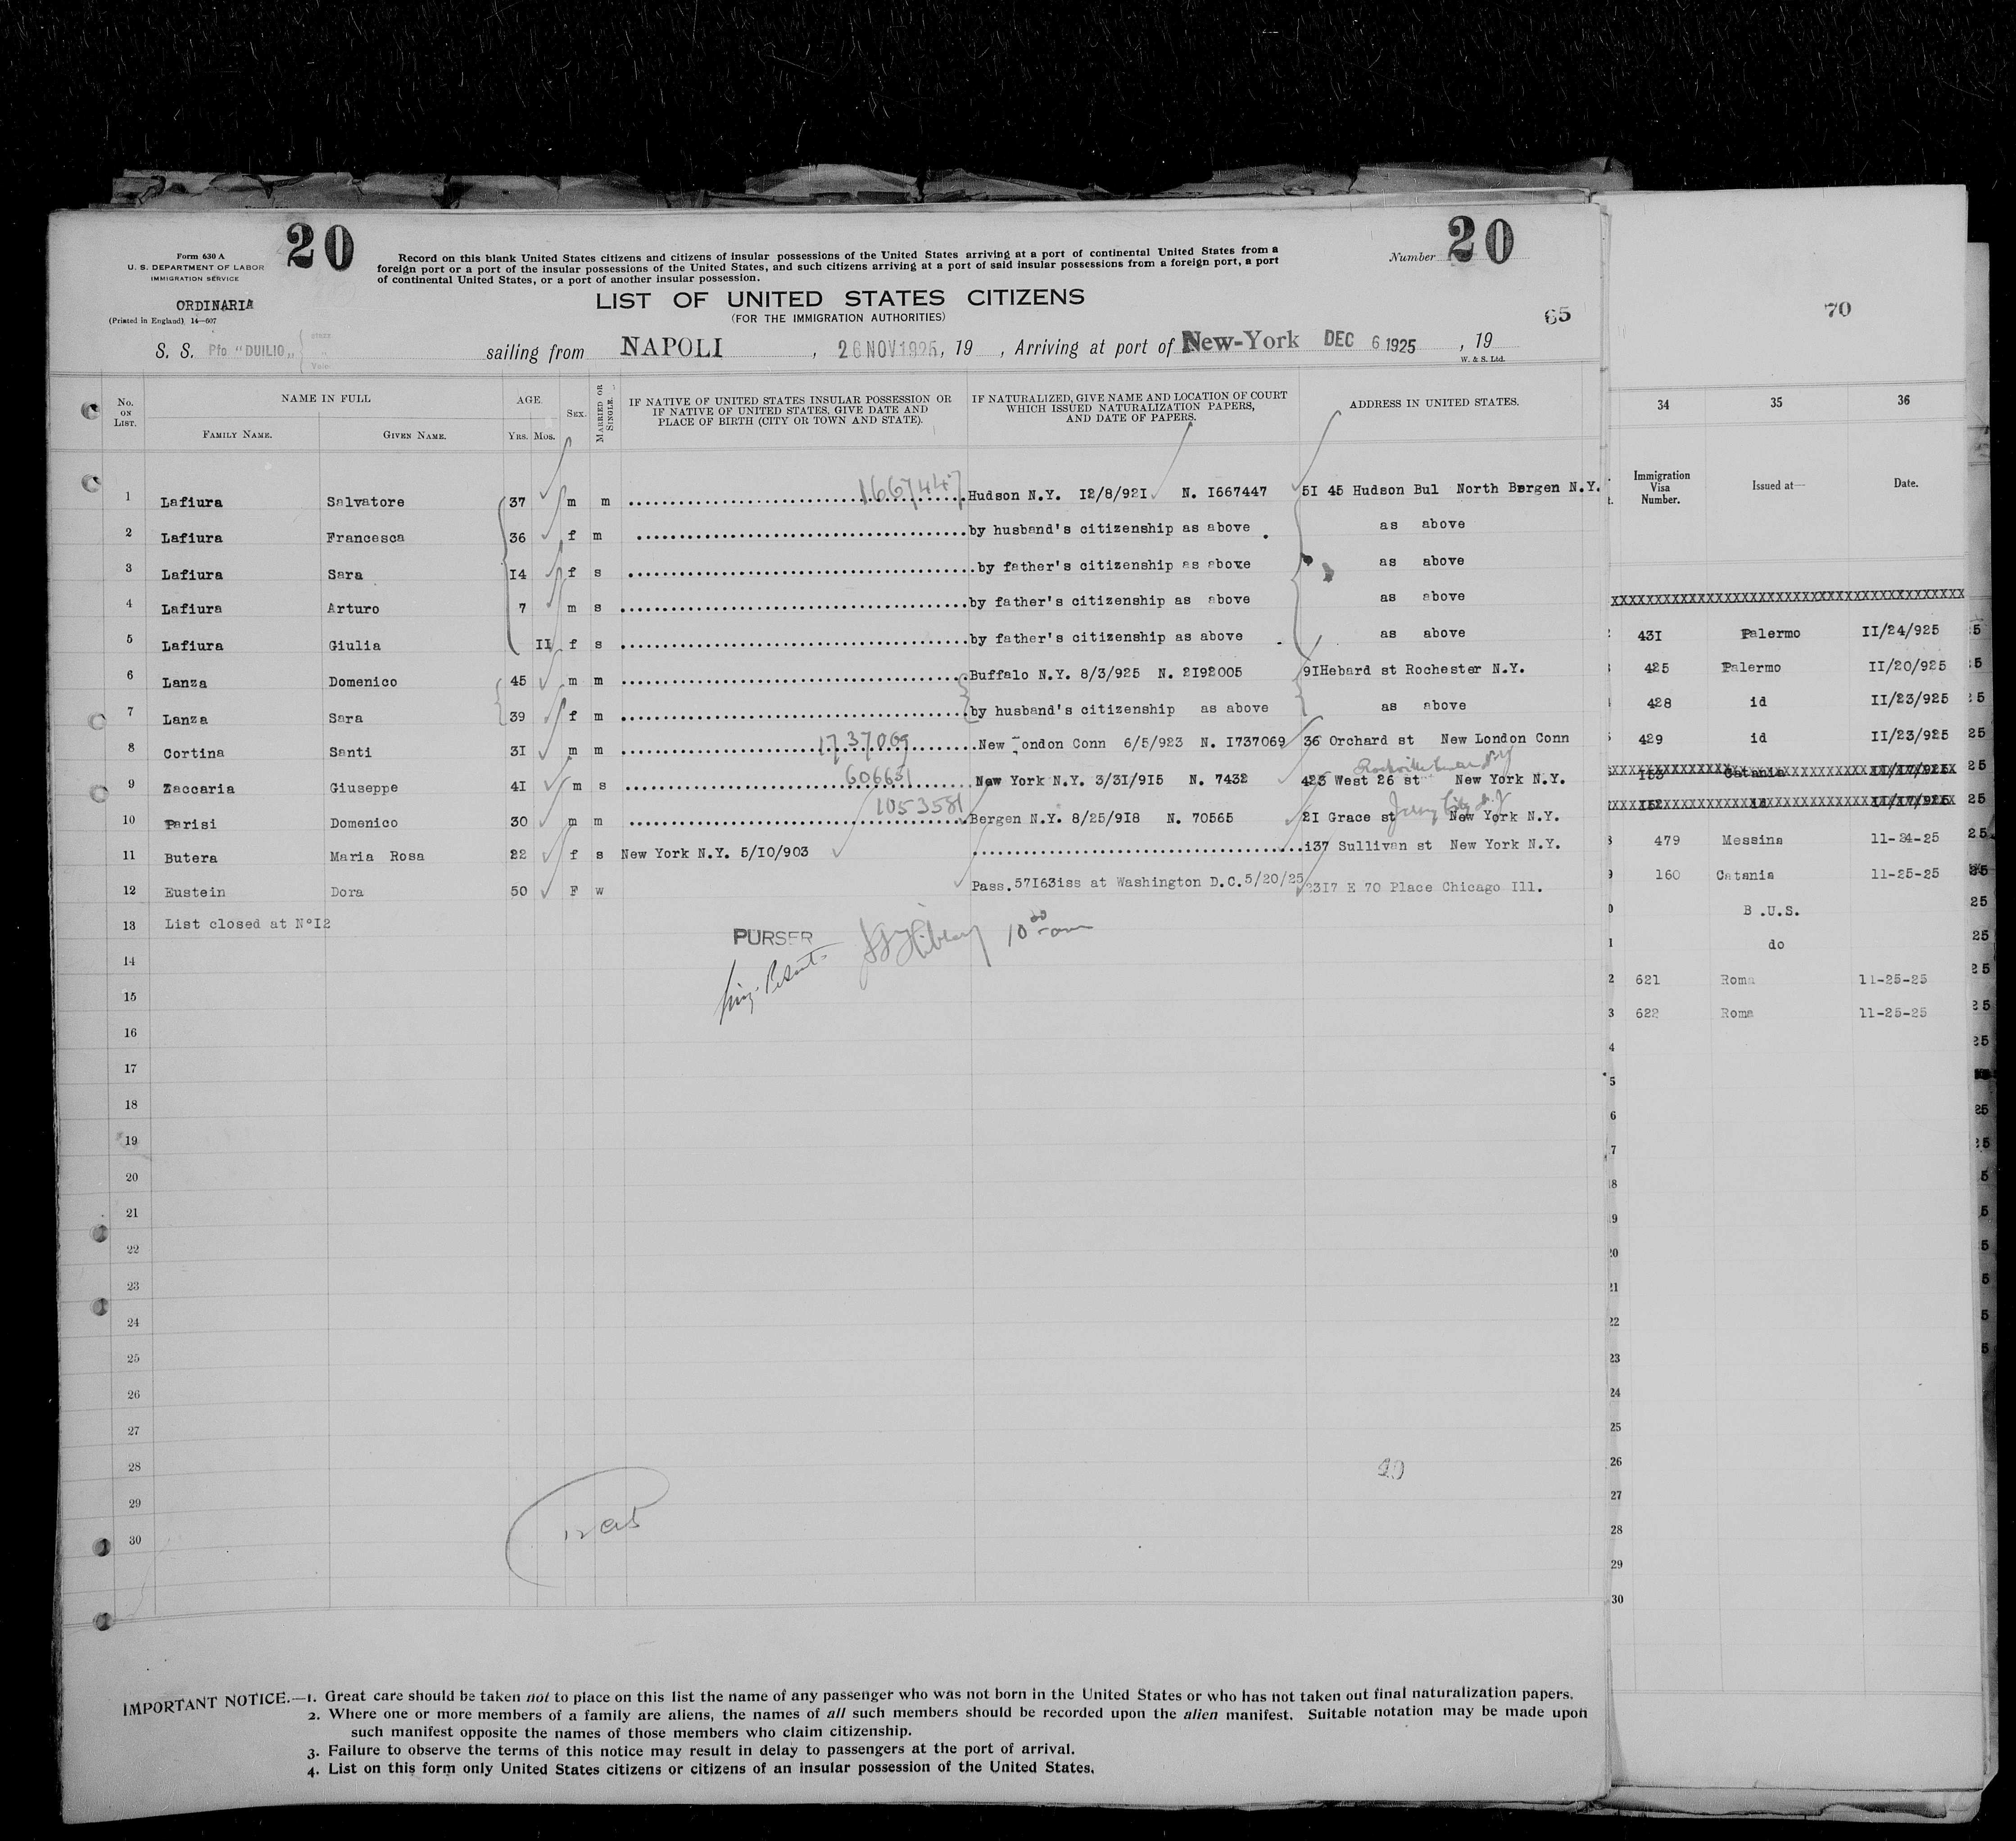 20
20
Form 630 A
U. S. DEPARTMENT OF LABOR
IMMIGRATION SERVICE
ORDINARIA
(Printed in England) 14—607
Record on this blank United States citizens and citizens of insular possessions of the United States arriving at a port of continental United States from a
foreign port or a port of the insular possessions of the United States, and such citizens arriving at a port of said insular possessions from a foreign port, a port
of continental United States, or a port of another insular possession.
Number
LIST OF UNITED STATES CITIZENS
(FOR THE IMMIGRATION AUTHORITIES)
65
S. S. Pfo "DUILIO" sailing from NAPOLI, 26 NOV 1925, 19 , Arriving at port of New-York DEC 6 1925, 19
W. & S. Ltd.
No. ON LIST. NAME IN FULL AGE. SEX. MARRIED OR SINGLE. IF NATIVE OF UNITED STATES INSULAR POSSESSION OR IF NATIVE OF UNITED STATES, GIVE DATE AND PLACE OF BIRTH (CITY OR TOWN AND STATE). IF NATURALIZED, GIVE NAME AND LOCATION OF COURT WHICH ISSUED NATURALIZATION PAPERS, AND DATE OF PAPERS. ADDRESS IN UNITED STATES.
FAMILY NAME. GIVEN NAME. YRS. MOS.
1 Lafiura Salvatore 37 m m 1667447 Hudson N.Y. I2/8/92I N. I667447 5I 45 Hudson Bul North Bergen N.Y.
2 Lafiura Francesca 36 f m by husband's citizenship as above as above
3 Lafiura Sara I4 f s by father's citizenship as above as above
4 Lafiura Arturo 7 m s by father's citizenship as above as above
5 Lafiura Giulia II f s by father's citizenship as above as above
6 Lanza Domenico 45 m m Buffalo N.Y. 8/3/925 N. 2I92005 9IHebard st Rochester N.Y.
7 Lanza Sara 39 f m by husband's citizenship as above as above
8 Cortina Santi 3I m m 1737069 New London Conn 6/5/923 N. I737069 36 Orchard st New London Conn
9 Zaccaria Giuseppe 4I m s 606651 New York N.Y. 3/3I/9I5 N. 7432 423 West 26 st New York N.Y.
10 Parisi Domenico 30 m m 1053581 Bergen N.Y. 8/25/9I8 N. 70565 2I Grace st Jersey City N.J New York N.Y.
11 Butera Maria Rosa 22 f s New York N.Y. 5/I0/903 I37 Sullivan st New York N.Y.
12 Eustein Dora 50 F w Pass.57I63iss at Washington D.C.5/20/25 23I7 E 70 Place Chicago Ill.
13 List closed at N°I2
PURSER
10 20 am
14
15
16
17
18
19
20
21
22
23
24
25
26
27
28
29
30
IMPORTANT NOTICE.—1. Great care should be taken not to place on this list the name of any passenger who was not born in the United States or who has not taken out final naturalization papers.
2. Where one or more members of a family are aliens, the names of all such members should be recorded upon the alien manifest. Suitable notation may be made upon
such manifest opposite the names of those members who claim citizenship.
3. Failure to observe the terms of this notice may result in delay to passengers at the port of arrival.
4. List on this form only United States citizens or citizens of an insular possession of the United States.
70
34 35 36
Immigration Visa Number. Issued at— Date.
XXXXXXXXXXXXXXXXXXXXXXXXXXXXXXXXXXXXXXXX
43I Palermo II/24/925
425 Palermo II/20/925
428 id II/23/925
429 id II/23/925
I53 Catania II/I7/925
I52 id II/I7/925
479 Messina 11-24-25
160 Catania 11-25-25
B .U.S.
do
621 Roma 11-25-25
622 Roma 11-25-25